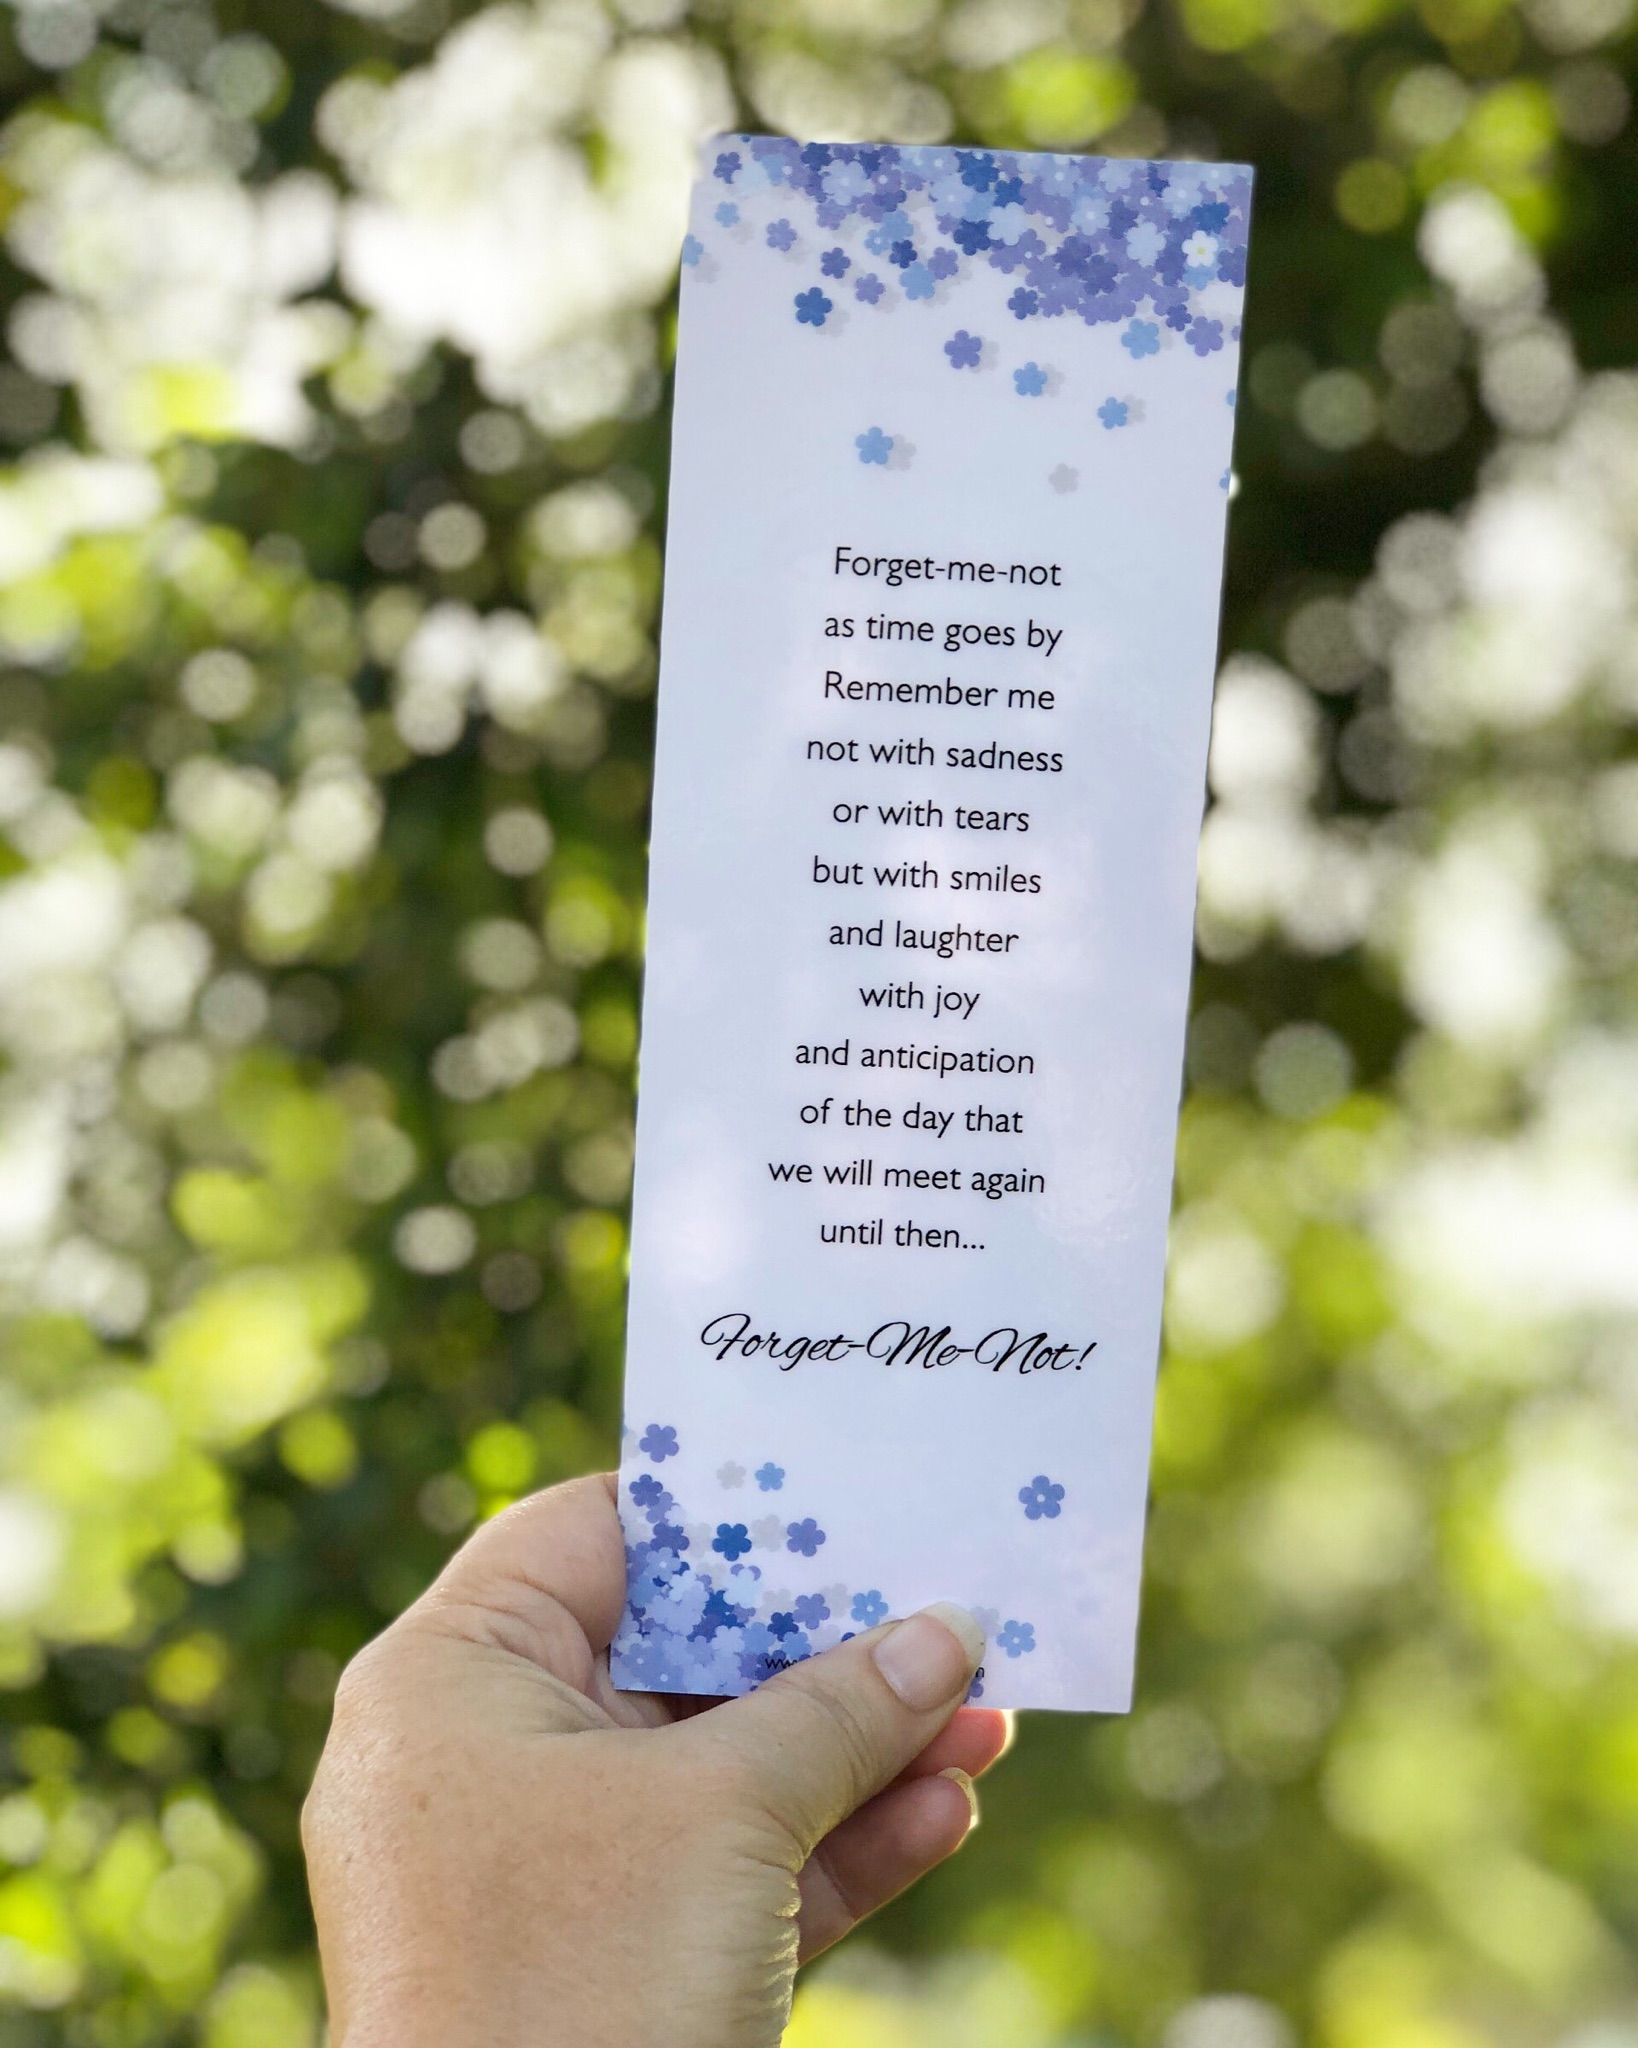 Forget-me-not
as time goes by
Remember me
not with sadness
or with tears
but with smiles
and laughter
with joy
and anticipation
of the day that
we will meet again
until then...
Forget-Me-Not!